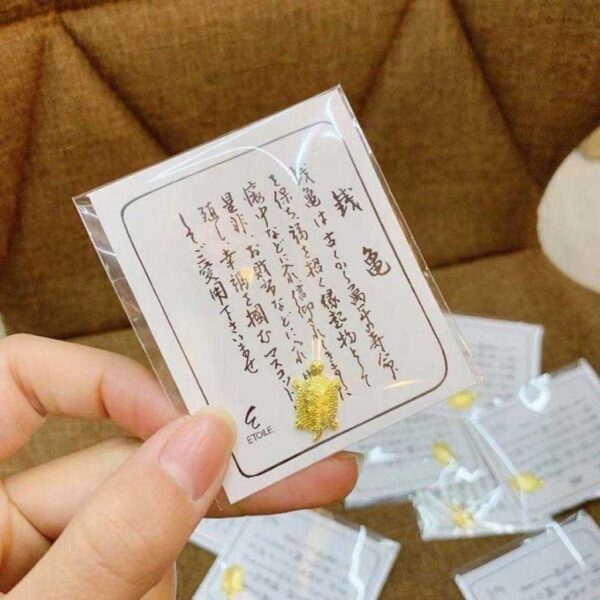 銭亀
銭亀は古くから萬年の寿命
を保ち、福を招く縁起物として
懐中などに入れ信仰されてきました
是非、お財布などに入れ
幸福を掴むマスコットと
してご愛用下さいませ
ETOILE